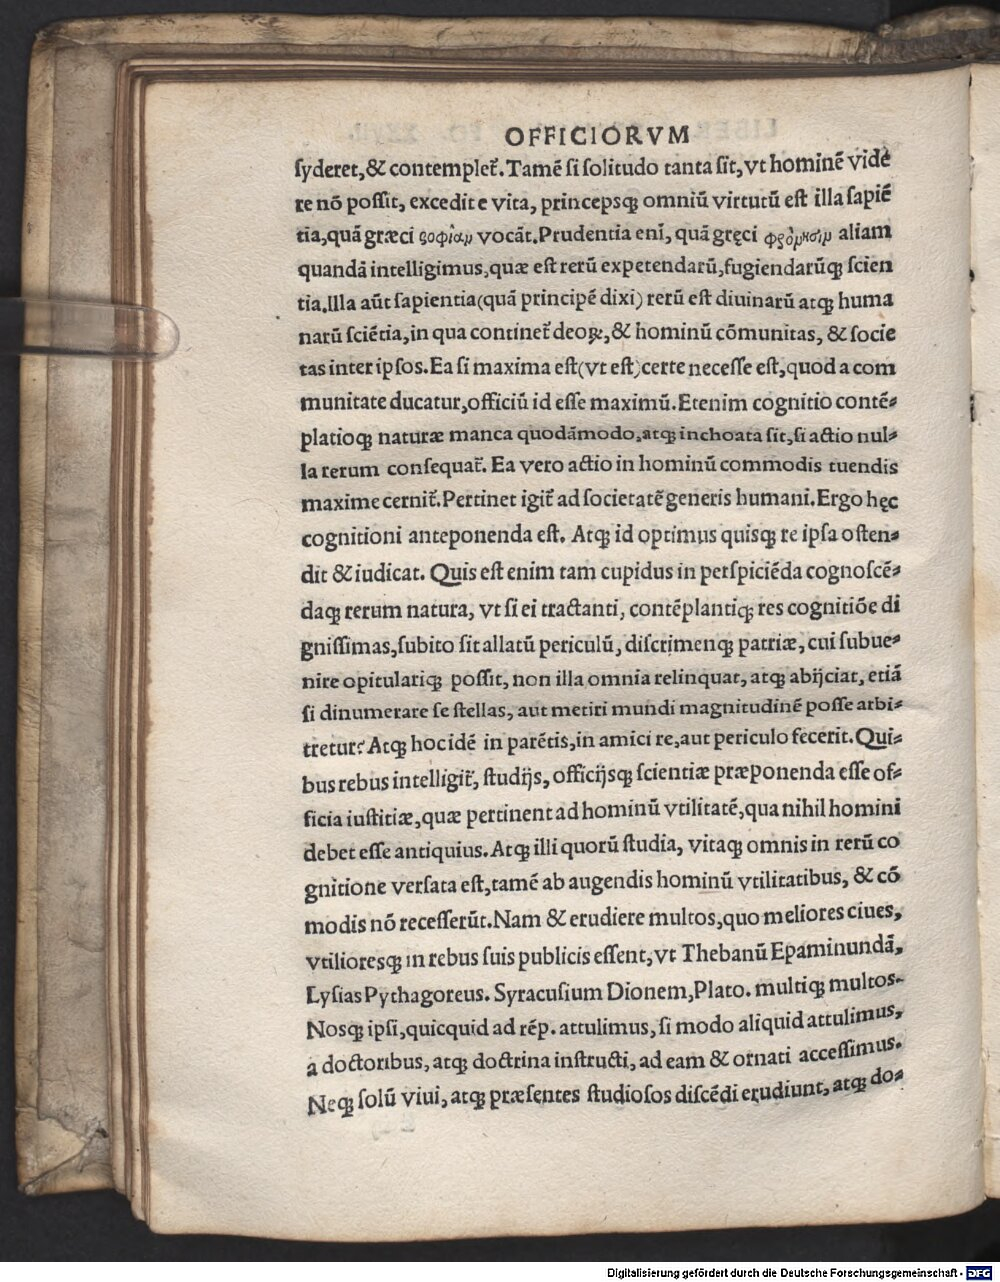 OFFICIORVM
syderet,& contemplet᷑. Tamē si solitudo tanta sit, vt hominē vidē
re nō possit, excedit e vita, princepsq; omniū virtutū est illa sapiē
tia, quā græci σοφίαμ vocāt. Prudentia enī, quā gręci φρόμησιμ aliam
quandā intelligimus, quæ est rerū expetendarū, fugiendarūq; scien
tia. Illa aūt sapientia (quā principē dixi) rerū est diuinarū atq; huma
narū sciētia, in qua continet᷑ deoꝝ, & hominū cōmunitas, & socie
tas inter ipsos. Ea si maxima est (vt est) certe necesse est, quod a com
munitate ducatur, officiū id esse maximū. Etenim cognitio contē-
platioq; naturæ manca quodāmodo, atq; inchoata sit, si actio nul-
la rerum consequat᷑. Ea vero actio in hominū commodis tuendis
maxime cernit᷑. Pertinet igit᷑ ad societatē generis humani. Ergo hęc
cognitioni anteponenda est. Atq; id optimus quisq; re ipsa osten-
dit & iudicat. Quis est enim tam cupidus in perspiciēda cognoscē-
daq; rerum natura, vt si ei tractanti, contēplantiq; res cognitiōe di
gnissimas, subito sit allatū periculū, discrimenq; patriæ, cui subue-
nire opitulariq; possit, non illa omnia relinquat, atq; abijciat, etiā
si dinumerare se stellas, aut metiri mundi magnitudinē posse arbi-
tretur? Atq; hoc idē in parētis, in amici re, aut periculo fecerit. Qui-
bus rebus intelligit᷑, studijs, officijsq; scientiæ præponenda esse of-
ficia iustitiæ, quæ pertinent ad hominū vtilitatē, qua nihil homini
debet esse antiquius. Atq; illi quorū studia, vitaq; omnis in rerū co
gnitione versata est, tamē ab augendis hominū vtilitatibus, & cō
modis nō recesserūt. Nam & erudiere multos, quo meliores ciues,
vtilioresq; in rebus suis publicis essent, vt Thebanū Epaminundā,
Lysias Pythagoreus. Syracusium Dionem, Plato. multiq; multos.
Nosq; ipsi, quicquid ad rēp. attulimus, si modo aliquid attulimus,
a doctoribus, atq; doctrina instructi, ad eam & ornati accessimus.
Neq; solū viui, atq; præsentes studiosos discēdi erudiunt, atq; do-
Digitalisierung gefördert durch die Deutsche Forschungsgemeinschaft - DFG